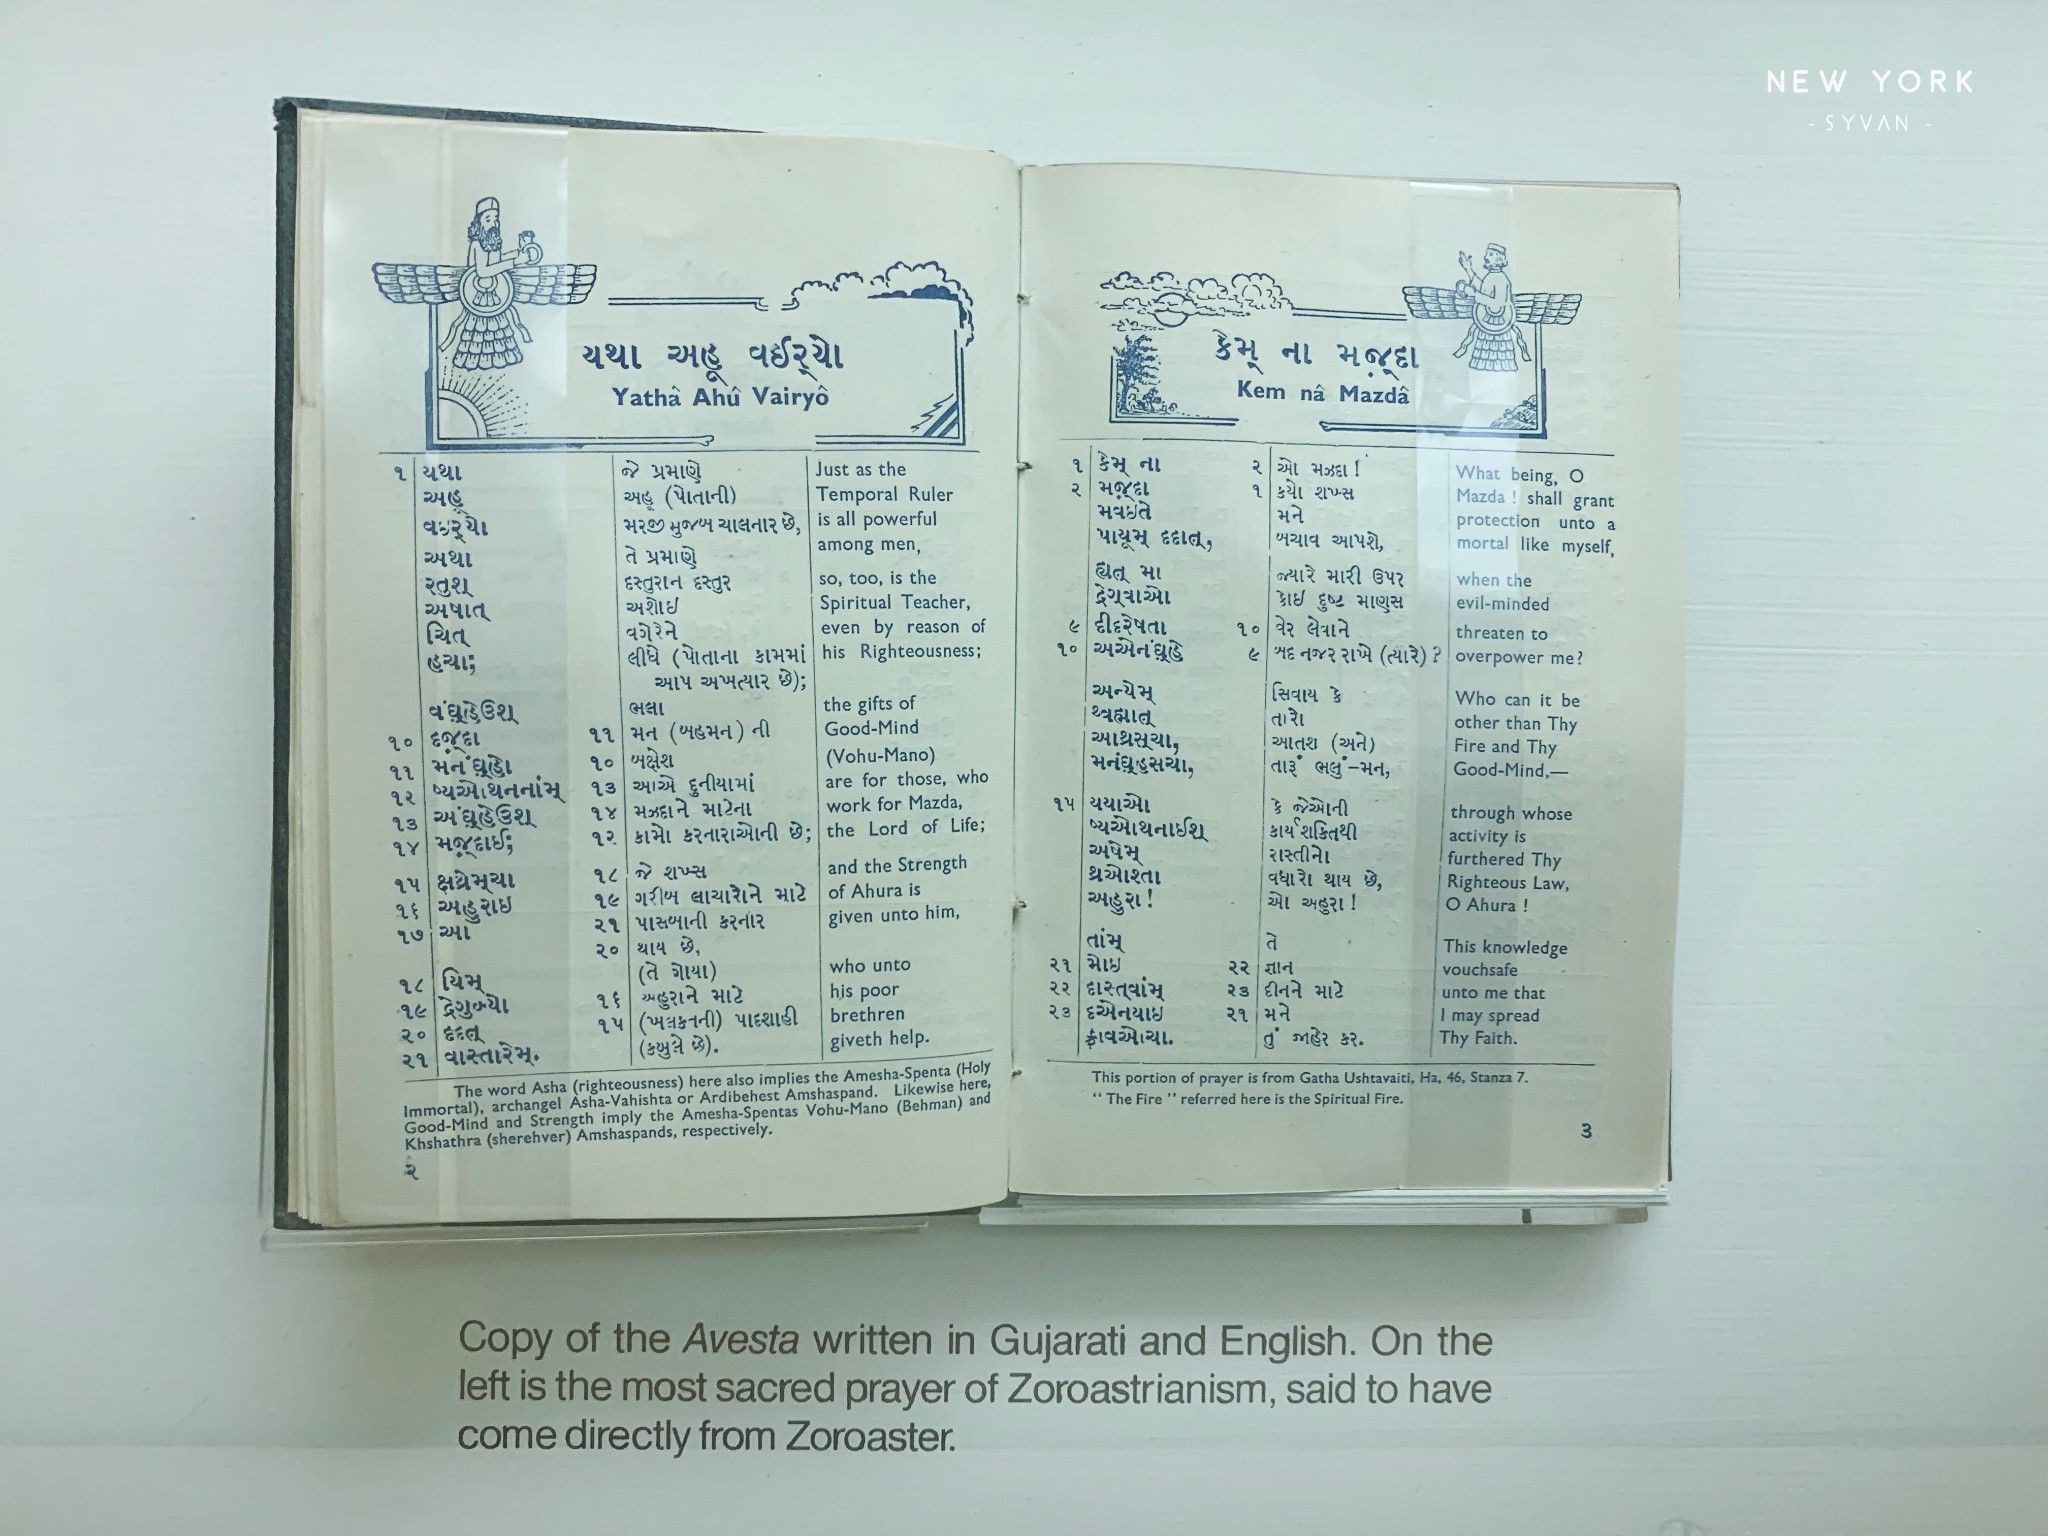 NEW YORK
- SYVAN -
યથા અહૂ વઈર્‌યો
Yathâ Ahû Vairyô
૧ યથા જે પ્રમાણે Just as the
અહૂ અહૂ (પોતાની) Temporal Ruler
વઇર્‌યો મરજી મુજબ ચાલનાર છે, is all powerful
among men,
અથા તે પ્રમાણે
રતુશ્ દસ્તુરાન દસ્તુર so, too, is the
અષાત્ અશોઇ Spiritual Teacher,
ચિત્ વગેરેને even by reason of
હચા; લીધે (પોતાના કામમાં his Righteousness;
આપ અખત્યાર છે);
વંઘ્‌હેઉશ્ ભલા the gifts of
૧૧ મન (બહમન) ની Good-Mind
૧૦ દજ઼્દા ૧૦ બક્ષેશ (Vohu-Mano)
૧૧ મનંઘ્‌હો ૧૩ આએ દુનીયામાં are for those, who
૧૨ ષ્યઓથનનાંમ્ ૧૪ મઝદાને માટેના work for Mazda,
૧૩ અંઘ્‌હેઉશ્ ૧૨ કામો કરનારાઓની છે; the Lord of Life;
૧૪ મજ઼્દાઇ;
૧૫ ક્ષથ્રેમ્‌ચા ૧૮ જે શખ્સ and the Strength
૧૬ અહુરાઇ ૧૯ ગરીબ લાચારોને માટે of Ahura is
૧૭ આ ૨૧ પાસબાની કરનાર given unto him,
૨૦ થાય છે,
૧૮ યિમ્ (તે ગોયા) who unto
૧૯ દ્રેગુબ્યો ૧૬ અહુરાને માટે his poor
૨૦ દદત્ ૧૫ (ખલકતની) પાદશાહી brethren
૨૧ વાસ્તારેમ્. (કબુલે છે). giveth help.
The word Asha (righteousness) here also implies the Amesha-Spenta (Holy
Immortal), archangel Asha-Vahishta or Ardibehest Amshaspand. Likewise here,
Good-Mind and Strength imply the Amesha-Spentas Vohu-Mano (Behman) and
Khshathra (sherehver) Amshaspands, respectively.
૨
કેમ્ ના મજ઼્દા
Kem nâ Mazdâ
૧ કેમ્ ના ૨ ઓ મઝદા ! What being, O
૨ મજ઼્દા ૧ કયો શખ્સ Mazda ! shall grant
મવઇતે મને protection unto a
પાયૂમ્ દદાત્, બચાવ આપશે, mortal like myself,
હ્યત્ મા જ્યારે મારી ઉપર when the
દ્રેગ્વાઓ કોઇ દુષ્ટ માણસ evil-minded
૯ દીદરેષતા ૧૦ વેર લેવાને threaten to
૧૦ અએનંઘ્‌હે ૯ બદ નજર રાખે (ત્યારે) ? overpower me?
અન્યેમ્ સિવાય કે Who can it be
થ્વહ્માત્ તારો other than Thy
આથ્રસ્ચા, આતશ (અને) Fire and Thy
મનંઘ્‌હસચા, તારૂં ભલું-મન, Good-Mind,—
૧૫ યયાઓ કે જેઓની through whose
ષ્યઓથનાઈશ્ કાર્યશક્તિથી activity is
અષેમ્ રાસ્તીનો furthered Thy
થ્રઓશ્તા વધારો થાય છે, Righteous Law,
અહુરા ! ઓ અહુરા ! O Ahura !
તાંમ્ તે This knowledge
૨૧ મોઇ ૨૨ જ્ઞાન vouchsafe
૨૨ દાસ્ત્વાંમ્ ૨૩ દીનને માટે unto me that
૨૩ દએનયાઇ ૨૧ મને I may spread
ફ્રાવઓચા. તું જાહેર કર. Thy Faith.
This portion of prayer is from Gatha Ushtavaiti, Ha, 46, Stanza 7.
“ The Fire ” referred here is the Spiritual Fire.
૩
Copy of the Avesta written in Gujarati and English. On the
left is the most sacred prayer of Zoroastrianism, said to have
come directly from Zoroaster.